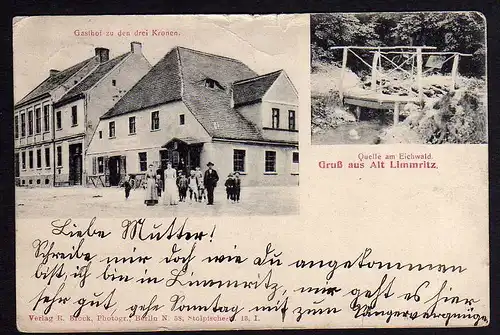 Gasthof zu den drei Kronen.
Quelle am Eichwald.
Gruß aus Alt Limmritz.
Liebe Mutter!
Schreibe mir doch wie du angekommen
bist, ich bin in Limmritz, mir geht es hier
sehr gut, gehe Sonntag mit zum Sängervergnüge
Verlag R. Brock, Photogr., Berlin N. 58, Stolpischestr. 13, I.